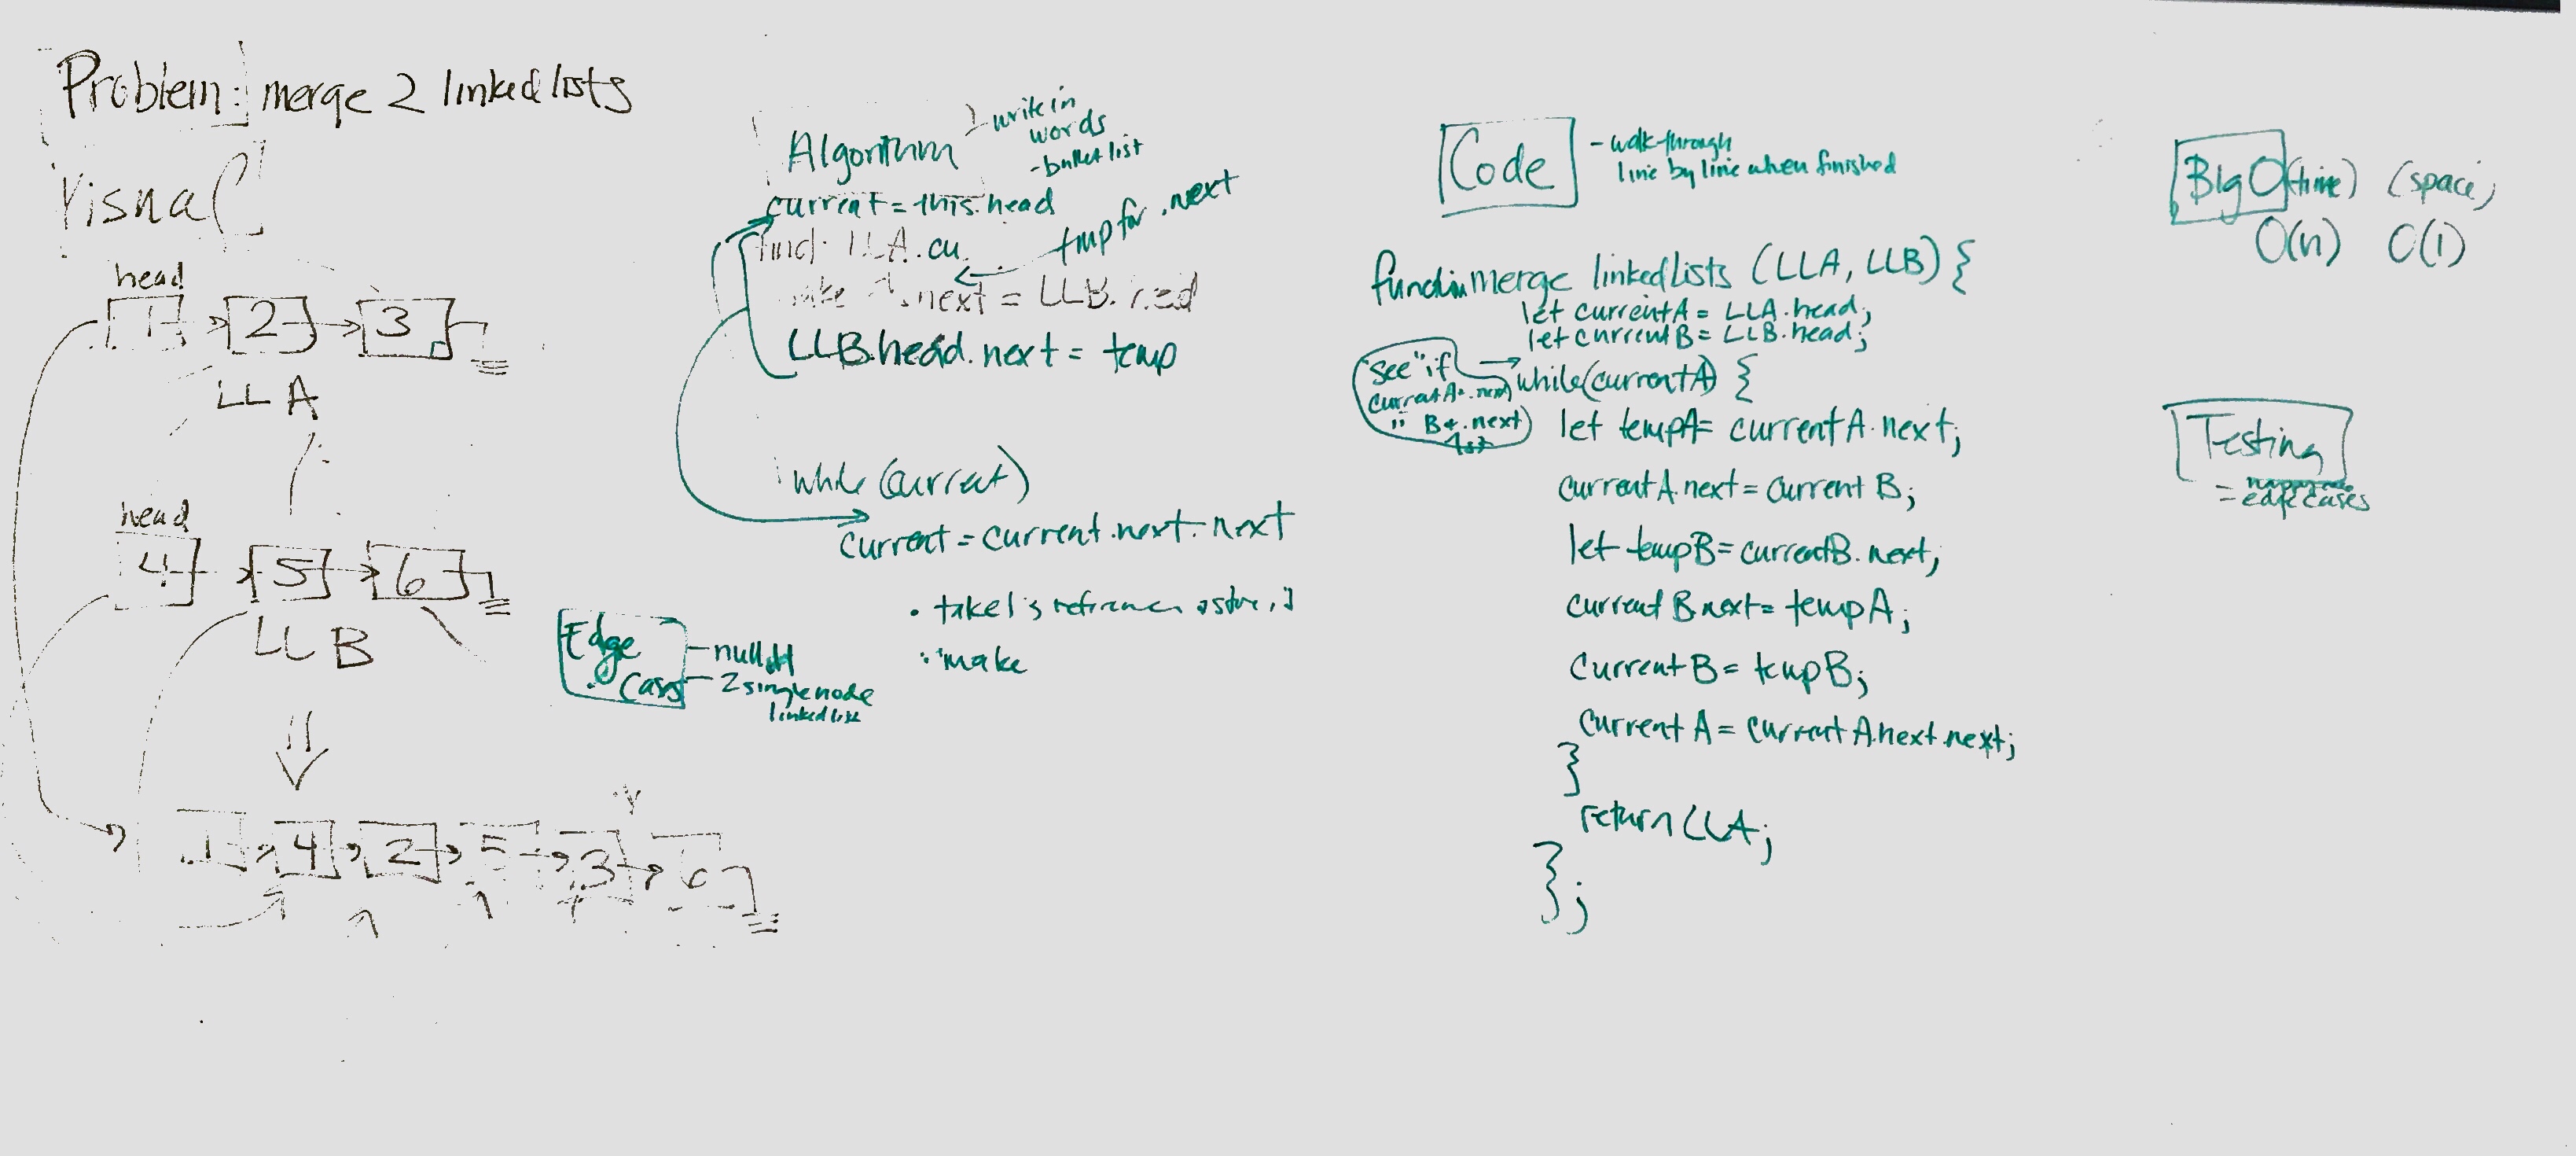 Problem: merge 2 linked lists
Visual
head
1 2 3
LL A
head
4 5 6
LL B
1 4 2 5 3 6
Algorithm
- write in
words
- bullet list
current = this.head
tmp for .next
find LLA.cu
next = LLB.
LLB.head.next = temp
while (current)
current = current.next.next
• take 1's
• make
Edge
Cases
- null
- 2 single node
linked list
Code
- walk through
line by line when finished
function merge linked Lists (LLA, LLB) {
let currentA = LLA.head;
let currentB = LLB.head;
"see" if
currentA.next
" B .next
while(currentA) {
let tempA = currentA.next;
currentA.next = currentB;
let tempB = currentB.next;
currentB.next = tempA;
currentB = tempB;
currentA = currentA.next.next;
}
return LLA;
};
Big O (time) (space)
O(n) O(1)
Testing
= edge cases